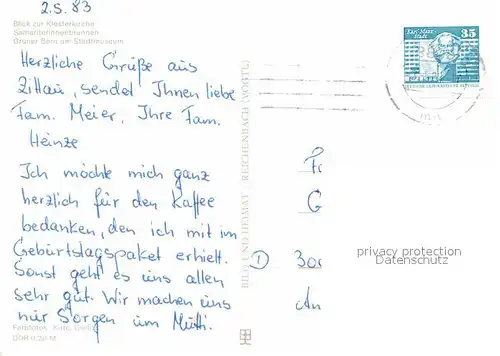 2.5.83
Blick zur Klosterkirche
Samariterinnenbrunnen
Grüner Born am Stadtmuseum
Herzliche Grüße aus
Zittau, sendet Ihnen liebe
Fam. Meier, Ihre Fam.
Heinze
Ich möchte mich ganz
herzlich für den Kaffee
bedanken, den ich mit im
Geburtstagspaket erhielt.
Sonst geht es uns allen
sehr gut. Wir machen uns
nur Sorgen um Mutti.
Fotos:
DDR 0,20 M
BILD UND HEIMAT REICHENBACH (VOGTL)
KARL-MARX-
STADT
35
1
300
privacy protection
Datenschutz